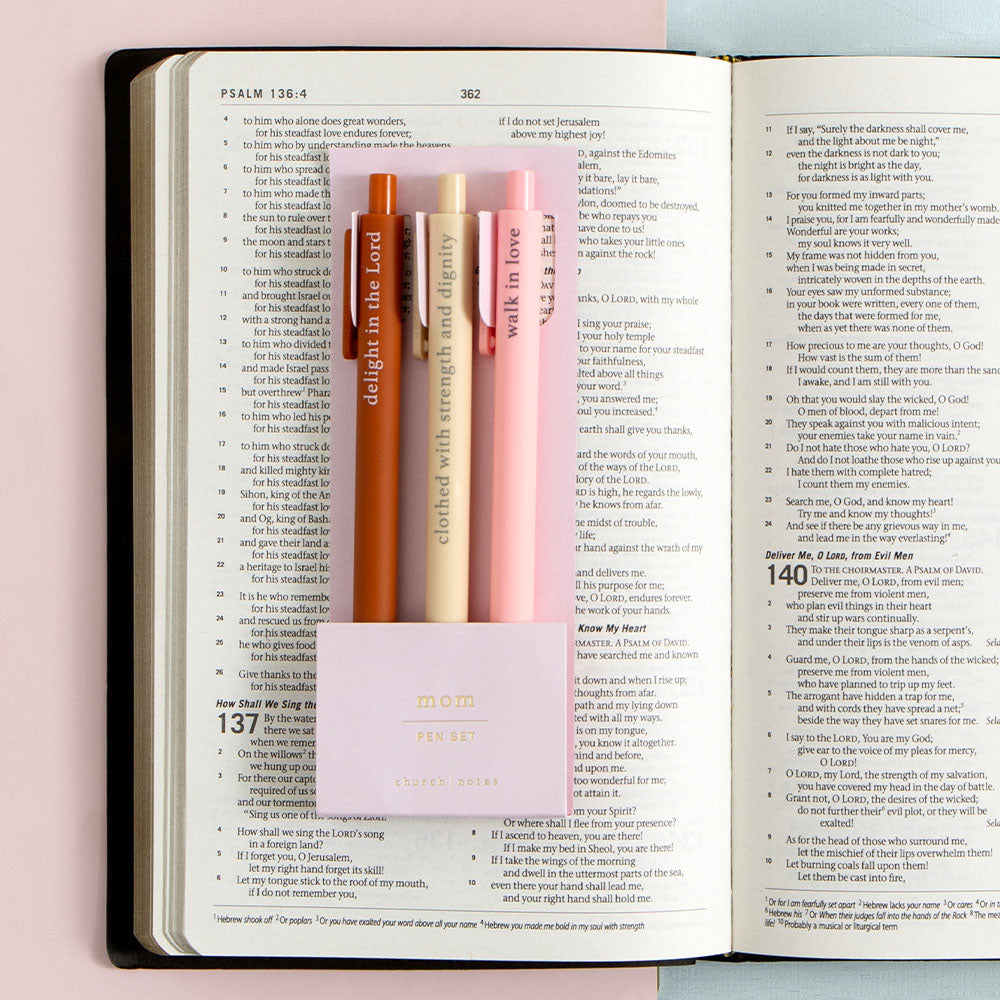 PSALM 136:4
362
4 to him who alone does great wonders,
for his steadfast love endures forever;
5 to him who by understanding made the heavens
for his steadfast lo
6 to him who spread o
for his steadfast lo
7 to him who made th
for his steadfast lo
8 the sun to rule over t
for his steadfast lo
9 the moon and stars t
for his steadfast lo
10 to him who struck do
for his steadfast lo
11 and brought Israel ou
for his steadfast lo
12 with a strong hand a
for his steadfast lo
13 to him who divided t
for his steadfast lo
14 and made Israel pass
for his steadfast lo
15 but overthrew² Phara
for his steadfast lo
16 to him who led his pe
for his steadfast lo
17 to him who struck do
for his steadfast lo
18 and killed mighty kin
for his steadfast lo
19 Sihon, king of the Am
for his steadfast lo
20 and Og, king of Bash
for his steadfast lo
21 and gave their land as
for his steadfast lo
22 a heritage to Israel his
for his steadfast lo
23 It is he who remembe
for his steadfast lo
24 and rescued us from o
for his steadfast
25 he who gives food
for his steadfast
26 Give thanks to the
for his steadfast
How Shall We Sing the
137 By the water
there we sat
when we remem
2 On the willows² th
we hung up our
3 For there our capto
required of us so
and our tormento
"Sing us one of the songs of Zion!"
4 How shall we sing the LORD's song
in a foreign land?
5 If I forget you, O Jerusalem,
let my right hand forget its skill!
6 Let my tongue stick to the roof of my mouth,
if I do not remember you,
if I do not set Jerusalem
above my highest joy!
D, against the Edomites
alem,
y it bare, lay it bare,
ndations!"
ylon, doomed to be destroyed,
be who repays you
have done to us!
who takes your little ones
m against the rock!
anks, O LORD, with my whole
I sing your praise;
d your holy temple
to your name for your steadfast
faithfulness,
lted above all things
your word.³
, you answered me;
oul you increased.⁴
earth shall give you thanks,
ard the words of your mouth,
of the ways of the LORD,
lory of the LORD.
RD is high, he regards the lowly,
he knows from afar.
he midst of trouble,
life;
ur hand against the wrath of my
and delivers me.
ll his purpose for me;
ve, O LORD, endures forever.
he work of your hands.
Know My Heart
RMASTER. A PSALM OF DAVID.
have searched me and known
it down and when I rise up;
thoughts from afar.
path and my lying down
ted with all my ways.
is on my tongue,
, you know it altogether.
hind and before,
nd upon me.
too wonderful for me;
ot attain it.
om your Spirit?
Or where shall I flee from your presence?
8 If I ascend to heaven, you are there!
If I make my bed in Sheol, you are there!
9 If I take the wings of the morning
and dwell in the uttermost parts of the sea,
10 even there your hand shall lead me,
and your right hand shall hold me.
¹ Hebrew shook off ² Or poplars ³ Or you have exalted your word above all your name ⁴ Hebrew you made me bold in my soul with strength
delight in the Lord
clothed with strength and dignity
walk in love
mom
PEN SET
church | notes
11 If I say, "Surely the darkness shall cover me,
and the light about me be night,"
12 even the darkness is not dark to you;
the night is bright as the day,
for darkness is as light with you.
13 For you formed my inward parts;
you knitted me together in my mother's womb.
14 I praise you, for I am fearfully and wonderfully made
Wonderful are your works;
my soul knows it very well.
15 My frame was not hidden from you,
when I was being made in secret,
intricately woven in the depths of the earth.
16 Your eyes saw my unformed substance;
in your book were written, every one of them,
the days that were formed for me,
when as yet there was none of them.
17 How precious to me are your thoughts, O God!
How vast is the sum of them!
18 If I would count them, they are more than the sand
I awake, and I am still with you.
19 Oh that you would slay the wicked, O God!
O men of blood, depart from me!
20 They speak against you with malicious intent;
your enemies take your name in vain.²
21 Do I not hate those who hate you, O LORD?
And do I not loathe those who rise up against you
22 I hate them with complete hatred;
I count them my enemies.
23 Search me, O God, and know my heart!
Try me and know my thoughts!³
24 And see if there be any grievous way in me,
and lead me in the way everlasting!⁴
Deliver Me, O LORD, from Evil Men
140 TO THE CHOIRMASTER. A PSALM OF DAVID.
Deliver me, O LORD, from evil men;
preserve me from violent men,
2 who plan evil things in their heart
and stir up wars continually.
3 They make their tongue sharp as a serpent's,
and under their lips is the venom of asps. Sela
4 Guard me, O LORD, from the hands of the wicked;
preserve me from violent men,
who have planned to trip up my feet.
5 The arrogant have hidden a trap for me,
and with cords they have spread a net;⁵
beside the way they have set snares for me. Sela
6 I say to the LORD, You are my God;
give ear to the voice of my pleas for mercy,
O LORD!
7 O LORD, my Lord, the strength of my salvation,
you have covered my head in the day of battle.
8 Grant not, O LORD, the desires of the wicked;
do not further their⁶ evil plot, or they will be
exalted! Sela
9 As for the head of those who surround me,
let the mischief of their lips overwhelm them!
10 Let burning coals fall upon them!
Let them be cast into fire,
¹ Or for I am fearfully set apart ² Hebrew lacks your name ³ Or cares ⁴ Or in t
⁶ Hebrew his ⁷ Or When their judges fall into the hands of the Rock ⁸ The mea
life! ¹⁰ Probably a musical or liturgical term